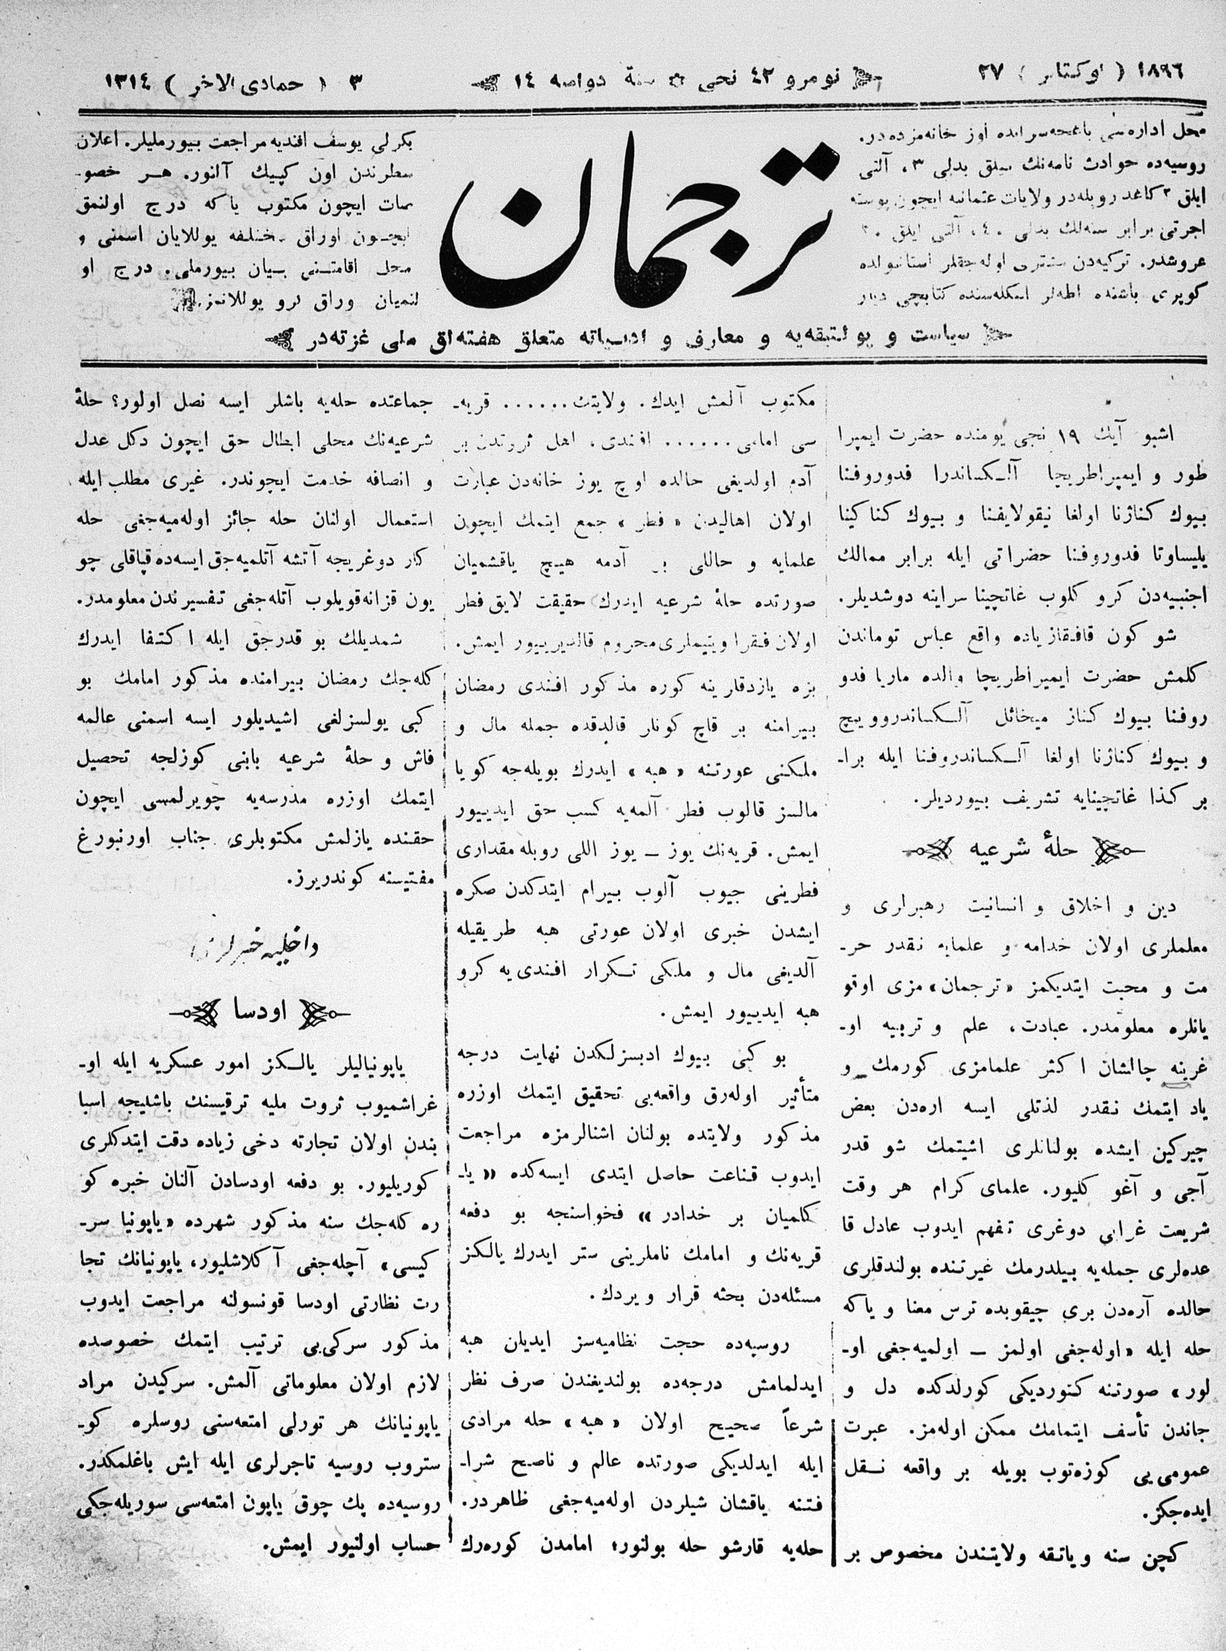 ١٨٩٦ ( اوكتابر ) ٢٧
نومرو ٤٢ نجى سنهٔ دوامه ١٤
٣ ( جمادى الاخر ) ١٣١٤
محل اداره‌سى باغچه‌سرايده اوز خانه‌مزده‌در.
روسيه‌ده حوادث نامه‌نك سيلق بدلى ٣، آلتى
ايلق ٢ كاغد روبله‌در ولايات عثمانيه ايچون پوسته
اجرتى برابر سنه‌لك بدلى ٤٠، آلتى ايلق ٢٠
غروشدر. تركيه‌دن مشترى اوله‌جقلر استانبولده
كوپرى باشنده اطه‌لر اسكله‌سنده كتابچى ديار
ترجمان
بكرلى يوسف افنديه مراجعت بيورمليلر. اعلان
سطرندن اون كپيك آلنور. هر خصو-
صات ايچون مكتوب ياكه درج اولنمق
ايچون اوراق مختلفه يوللايان اسمنى و
محل اقامتنى بيان بيورملى. درج او
لنميان وراق كرو يوللانمز.
سياست و پولتيقه‌يه و معارف و ادبياته متعلق هفته‌لق ملى غزته‌در
اشبو آيك ١٩ نجى يومنده حضرت ايمپرا
طور و ايمپراطريچا آلكساندرا فدوروفنا
بيوك كناژنا اولغا نيقولايفنا و بيوك كناكينا
يليساوتا فدوروفنا حضراتى ايله برابر ممالك
اجنبيه‌دن كرو كلوب غاتچينا سراينه دوشديلر.
شو كون قافقازياده واقع عباس توماندن
كلمش حضرت ايمپراطريچا والده ماريا فدو
روفنا بيوك كناز ميخائل آلكساندروويچ
و بيوك كناژنا اولغا آلكساندروفنا ايله برا-
بر كذا غاتچينايه تشريف بيورديلر.
حلهٔ شرعيه
دين و اخلاق و انسانيت رهبرارى و
معلملرى اولان خدامه و علمايه نقدر حر-
مت و محبت ايتديكمز «ترجمان» مزى اوقو
يانلره معلومدر. عبادت، علم و تربيه او-
غرينه چالشان اكثر علمامزى كورمك و
ياد ايتمك نقدر لذتلى ايسه اره‌دن بعض
چيركين ايشده بولنانلرى اشيتمك شو قدر
آجى و آغو كليور. علماى كرام هر وقت
شريعت غرايى دوغرى تفهم ايدوب عادل قا
عده‌لرى جمله‌يه بيلدرمك غيرتنده بولندقلرى
حالده آره‌دن برى چيقوبده ترس معنا و ياكه
حله ايله «اوله‌جغى اولمز — اولميه‌جغى او-
لور» صورتنه كتورديكى كورلدكده دل و
جاندن تأسف ايتمامك ممكن اوله‌مز. عبرت
عمومى‌يى كوزه‌توب بويله بر واقعه نقل
ايده‌جكز.
كچن سنه وياتقه ولايتندن مخصوص بر
مكتوب آلمش ايدك. ولايتك...... قريه-
سى امامى...... افندى، اهل ثروتدن بر
آدم اولديغى حالده اوچ يوز خانه‌دن عبارت
اولان اهاليدن «فطر» جمع ايتمك ايچون
علمايه و حاللى بر آدمه هيچ ياقشميان
صورتده حلهٔ شرعيه ايدرك حقيقت لايق فطر
اولان فقرا ويتيملرى محروم قالديريور ايمش.
بزه يازدقارينه كوره مذكور افندى رمضان
بيرامنه بر قاچ كونلر قالدقده جمله مال و
ملكنى عورتنه «هبه» ايدرك بويله‌جه كويا
مالسز قالوب فطر آلمه‌يه كسب حق ايدييور
ايمش. قريه‌نك يوز — يوز اللى روبله مقدارى
فطرينى جيوب آلوب بيرام ايتدكدن صكره
ايشدن خبرى اولان عورتى هبه طريقيله
آلديغى مال و ملكى تكرار افندى‌يه كرو
هبه ايدييور ايمش.
بو كبى بيوك ادبسزلكدن نهايت درجه
متأثير اوله‌رق واقعه‌يى تحقيق ايتمك اوزره
مذكور ولايتده بولنان اشنالرمزه مراجعت
ايدوب قناعت حاصل ايتدى ايسه‌كده «يا-
كلميان بر خدادر» فخواسنجه بو دفعه
قريه‌نك و امامك ناملرينى ستر ايدرك يالكز
مسئله‌دن بحثه قرار ويردك.
روسيه‌ده حجت نظاميه‌سز ايديلن هبه
ايدلمامش درجه‌ده بولنديغندن صرف نظر
شرعاً صحيح اولان «هبه» حله مرادى
ايله ايدلديكى صورتده عالم و ناصح شرا-
فتنه ياقشان شيلردن اوله‌ميه‌جغى ظاهردر.
حله‌يه قارشو حله بولنور؛ امامدن كوره‌رك
جماعتده حله‌يه باشلر ايسه نصل اولور؟ حلهٔ
شرعيه‌نك محلى ابطال حق ايچون دكل عدل
و انصافه خدمت ايچوندر. غيرى مطلب ايله
استعمال اولنان حله جائز اوله‌ميه‌جغى حله
كار دوغريجه آتشه آتلميه‌جق ايسه‌ده قپاقلى چو
يون قزانه قويلوب آتله‌جغى تفسيرندن معلومدر.
شمديلك بو قدرجق ايله اكتفا ايدرك
كله‌جك رمضان بيرامنده مذكور امامك بو
كبى يولسزلغى اشيديلور ايسه اسمنى عالمه
فاش و حلهٔ شرعيه بابنى كوزلجه تحصيل
ايتمك اوزره مدرسه‌يه چويرلمسى ايچون
حقنده يازلمش مكتوبلرى جناب اورنبورغ
مفتيسنه كوندريرز.
داخليه خبرلرى
اودسا
ياپونياليلر يالكز امور عسكريه ايله او-
غراشميوب ثروت مليه ترقيسنك باشليجه اسبا
بندن اولان تجارته دخى زياده دقت ايتدكلرى
كوريليور. بو دفعه اودسادن آلنان خبره كو
ره كله‌جك سنه مذكور شهرده «ياپونيا سر-
كيسى» آچله‌جغى آكلاشليور، ياپونيانك تجا
رت نظارتى اودسا قونسولنه مراجعت ايدوب
مذكور سركى‌يى ترتيب ايتمك خصوصده
لازم اولان معلوماتى آلمش. سركيدن مراد
ياپونيانك هر تورلى امتعه‌سنى روسلره كو-
ستروب روسيه تاجرلرى ايله ايش باغلمكدر.
روسيه‌ده پك چوق ياپون امتعه‌سى سوريله‌جكى
حساب اولنيور ايمش.